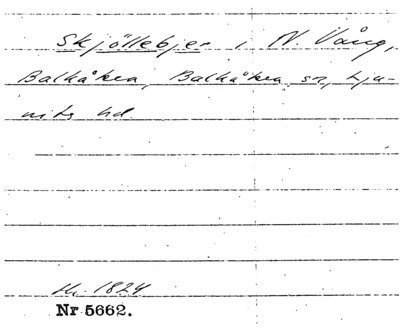 Skjöllebjer i N. Vång,
Balkåkra, Balkåkra sn, Lju-
nits hd.
Hs. 1824
Nr 5662.